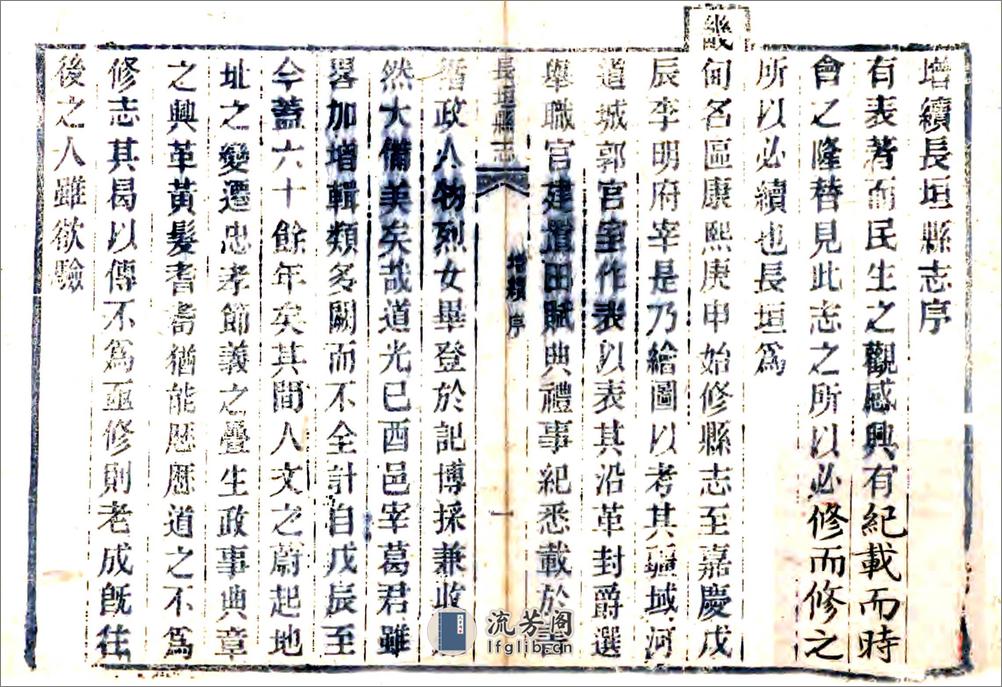 增續長垣縣志序
有表著而民生之觀感興有紀載而時
會之隆替見此志之所以必修而修之
所以必續也長垣爲
畿甸名區康熙庚申始修縣志至嘉慶戊
辰李明府宰是乃繪圖以考其疆域河
道城郭官室作表以表其沿革封爵選
舉職官建置田賦典禮事紀悉載於
長垣縣志 增續序 一
政人物烈女畢登於記博採兼收
然大備美矣哉道光已酉邑宰葛君雖
畧加增輯類多闕而不全計自戊辰至
今蓋六十餘年矣其間人文之蔚起地
址之變遷忠孝節義之疊生政事典章
之興革黃髮耆壽猶能歷歷道之不爲
修志其曷以傳不爲亟修則老成旣往
後之人雖欲驗
流芳阁
lfglib.cn